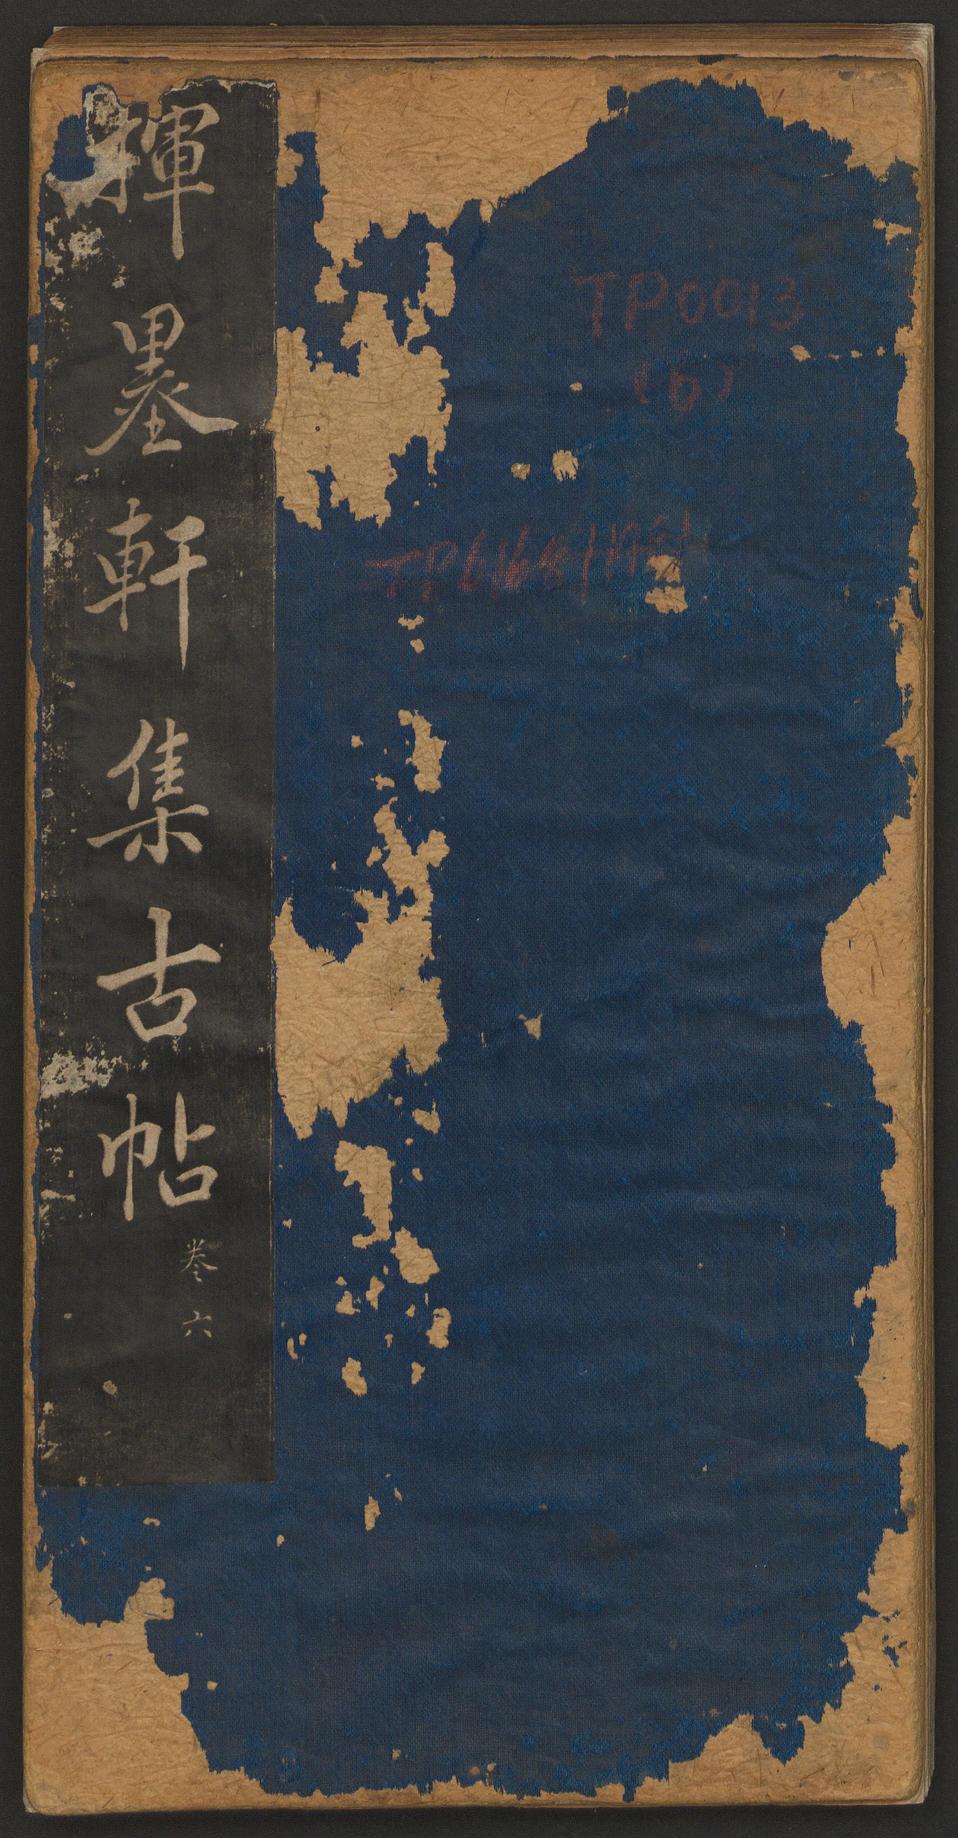 揮墨軒集古帖
卷六
TP0013
(6)